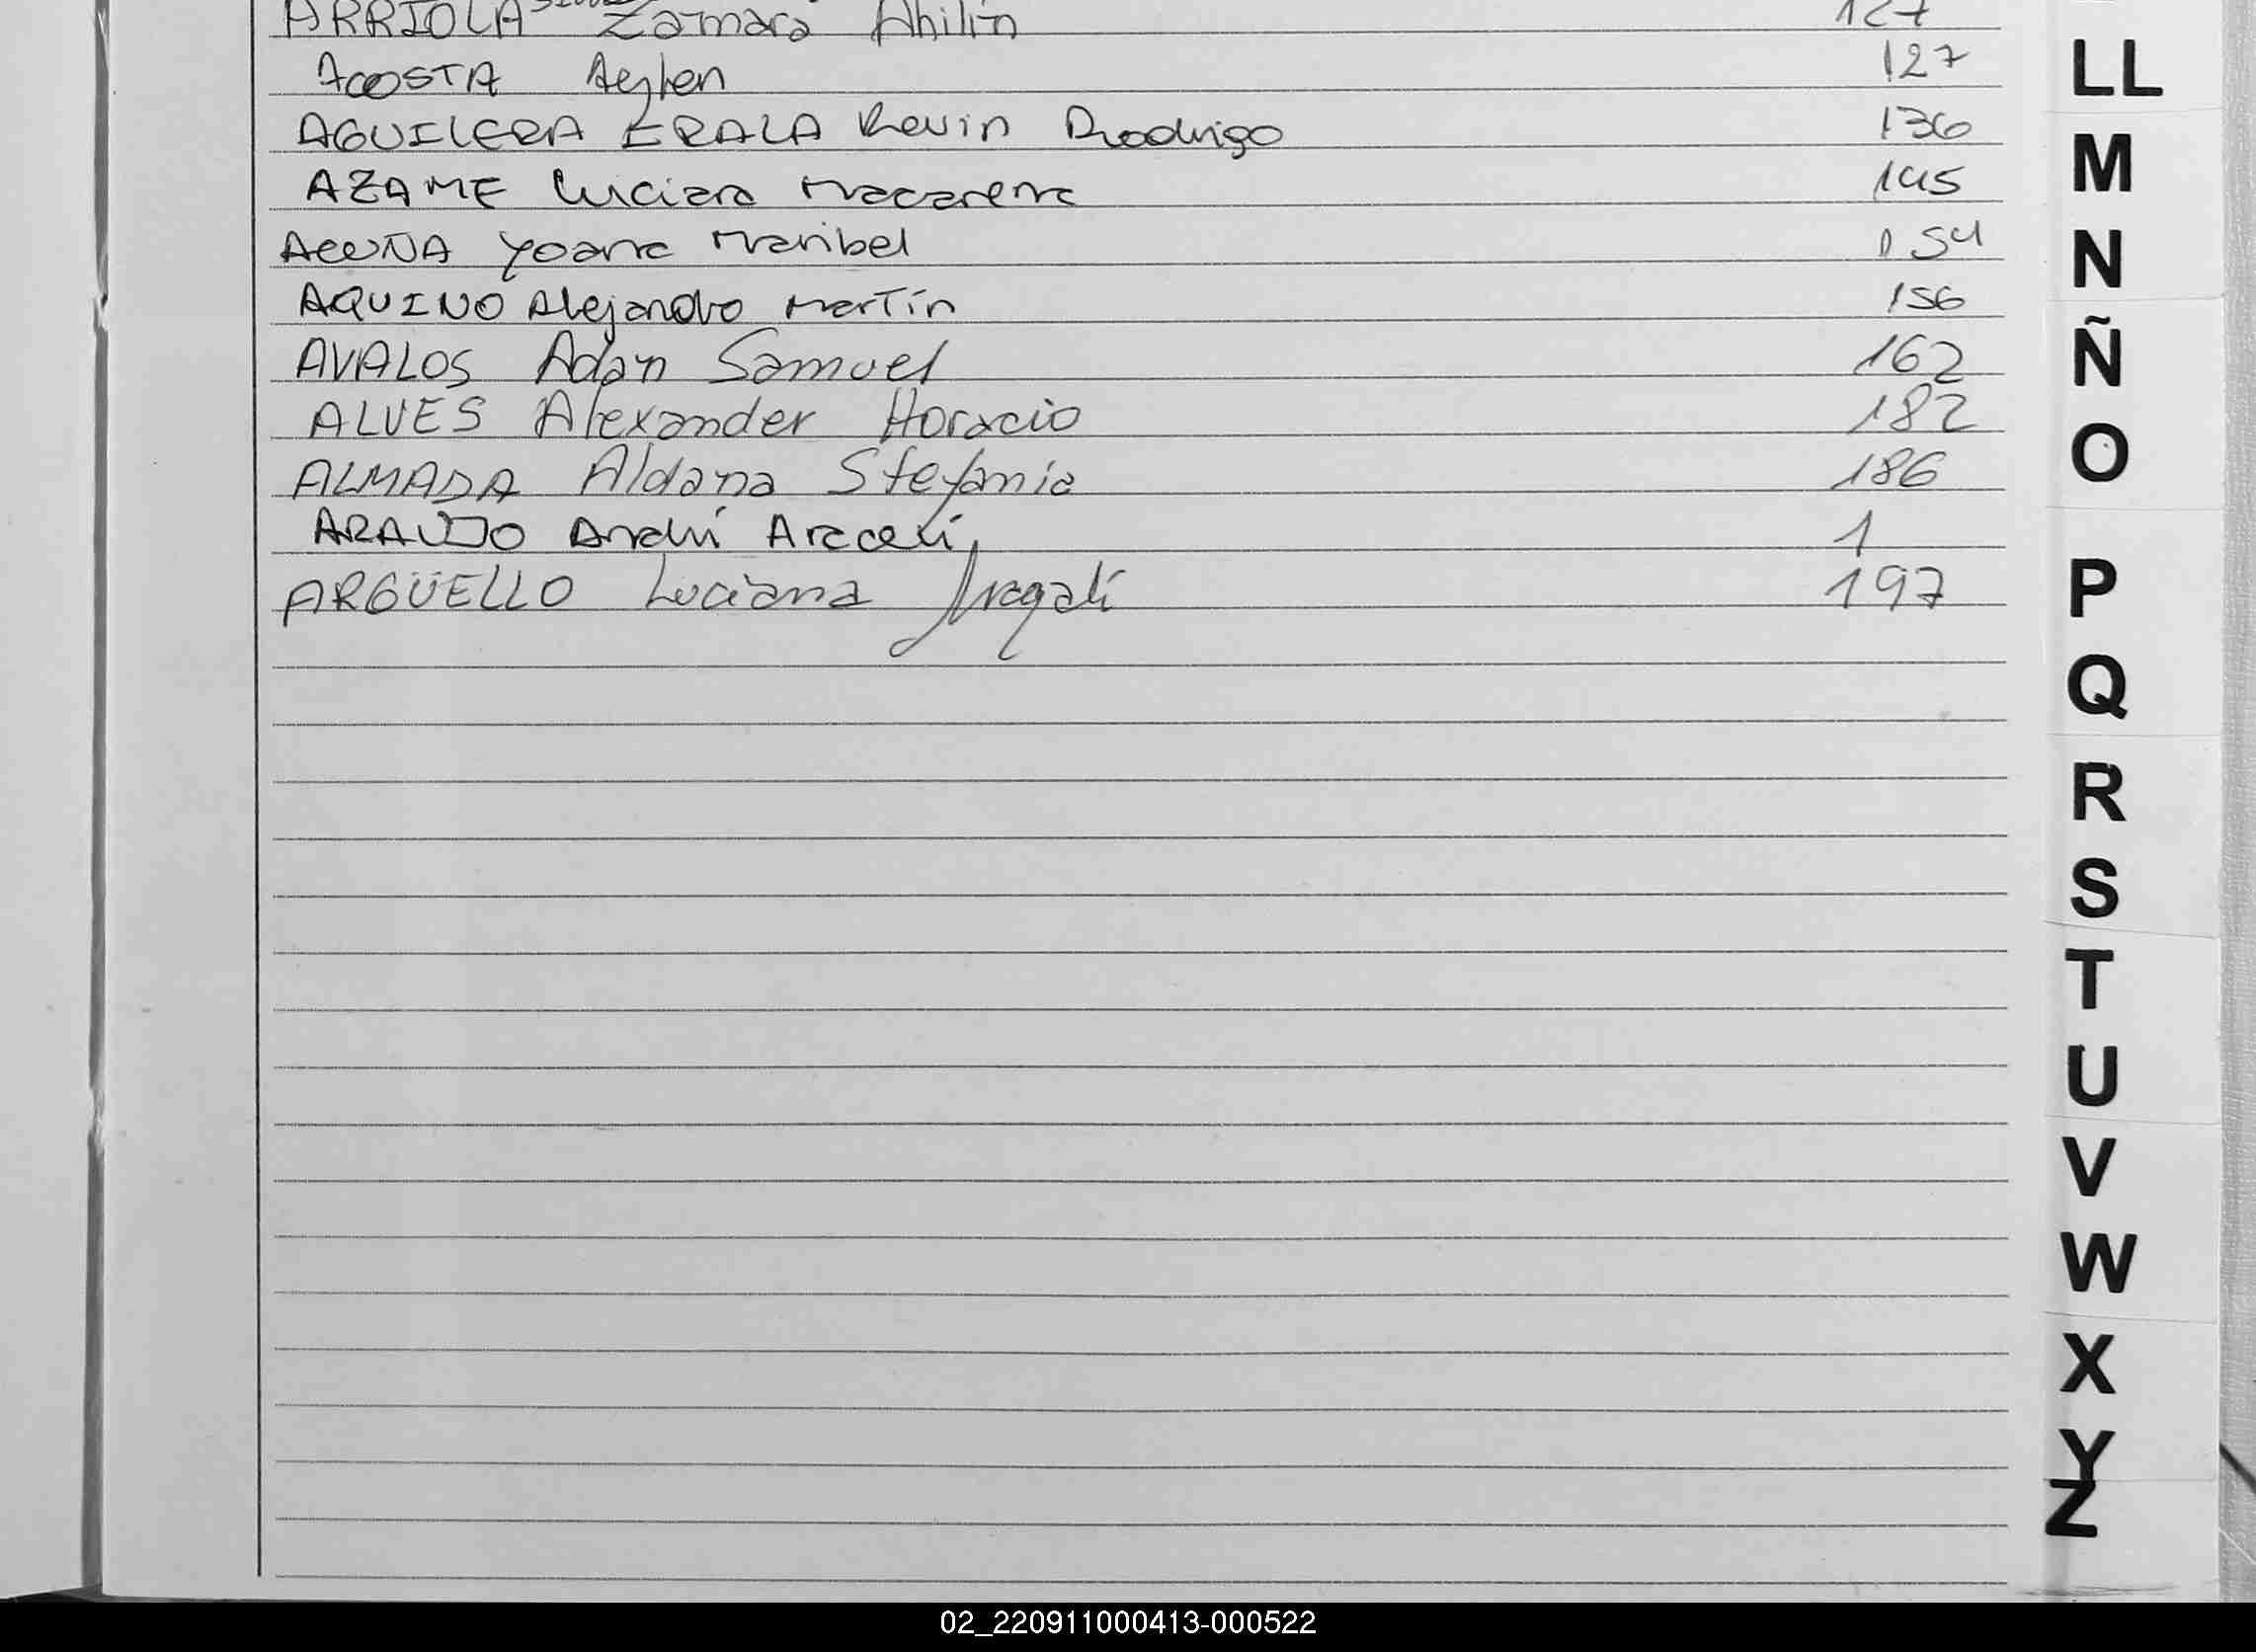 ARRIOLA Zamara Ahilin 127
ACOSTA Aylen 127
AGUILERA IRALA Kevin Rodrigo 136
AZAME Luciana Macarena 145
ACUÑA Yoana Maribel 154
AQUINO Alejandro Martín 156
AVALOS Adan Samuel 162
ALVES Alexander Horacio 182
ALMADA Aldana Stefania 186
ARAUJO Anahí Araceli 1
ARGÜELLO Luciana Magalí 197
LL
M
N
Ñ
O
P
Q
R
S
T
U
V
W
X
Y
Z
02_220911000413-000522